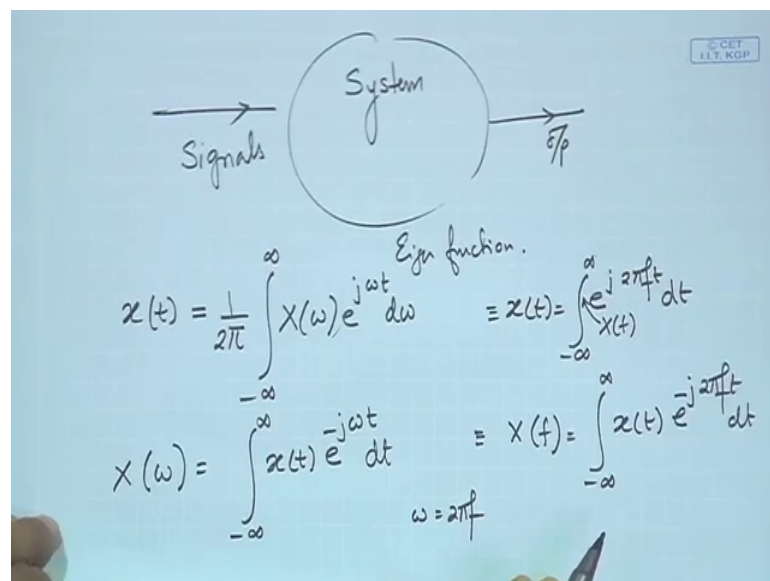 © CET
I.I.T. KGP
System
Signals
O/p
Eigen function.
x(t) = 1/2π ∫_{-∞}^{∞} X(ω) e^{jωt} dω ≡ x(t) = ∫_{-∞}^{∞} e^{j2πft} dt
X(f)
X(ω) = ∫_{-∞}^{∞} x(t) e^{-jωt} dt ≡ X(f) = ∫_{-∞}^{∞} x(t) e^{-j2πft} dt
ω = 2πf